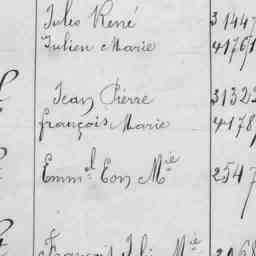 Jules René 3144
Julien Marie 4176
Jean Pierre 3132
françois Marie 4178
Emm.el Eon M.ie 2547
François M.ie